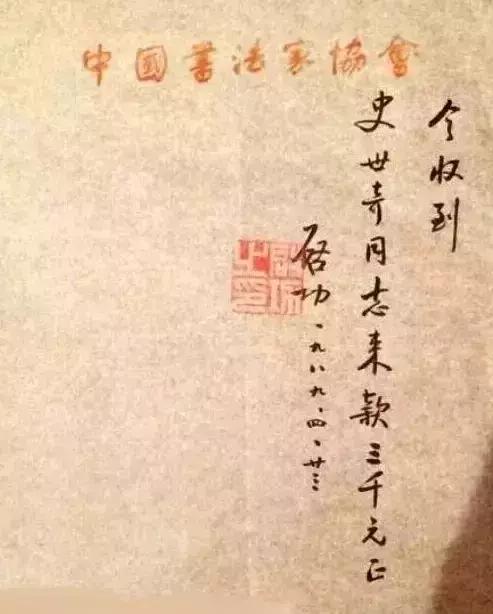 中國書法家協會
今收到
史世奇同志来款三千元正
启功、一九八九、四、廿三